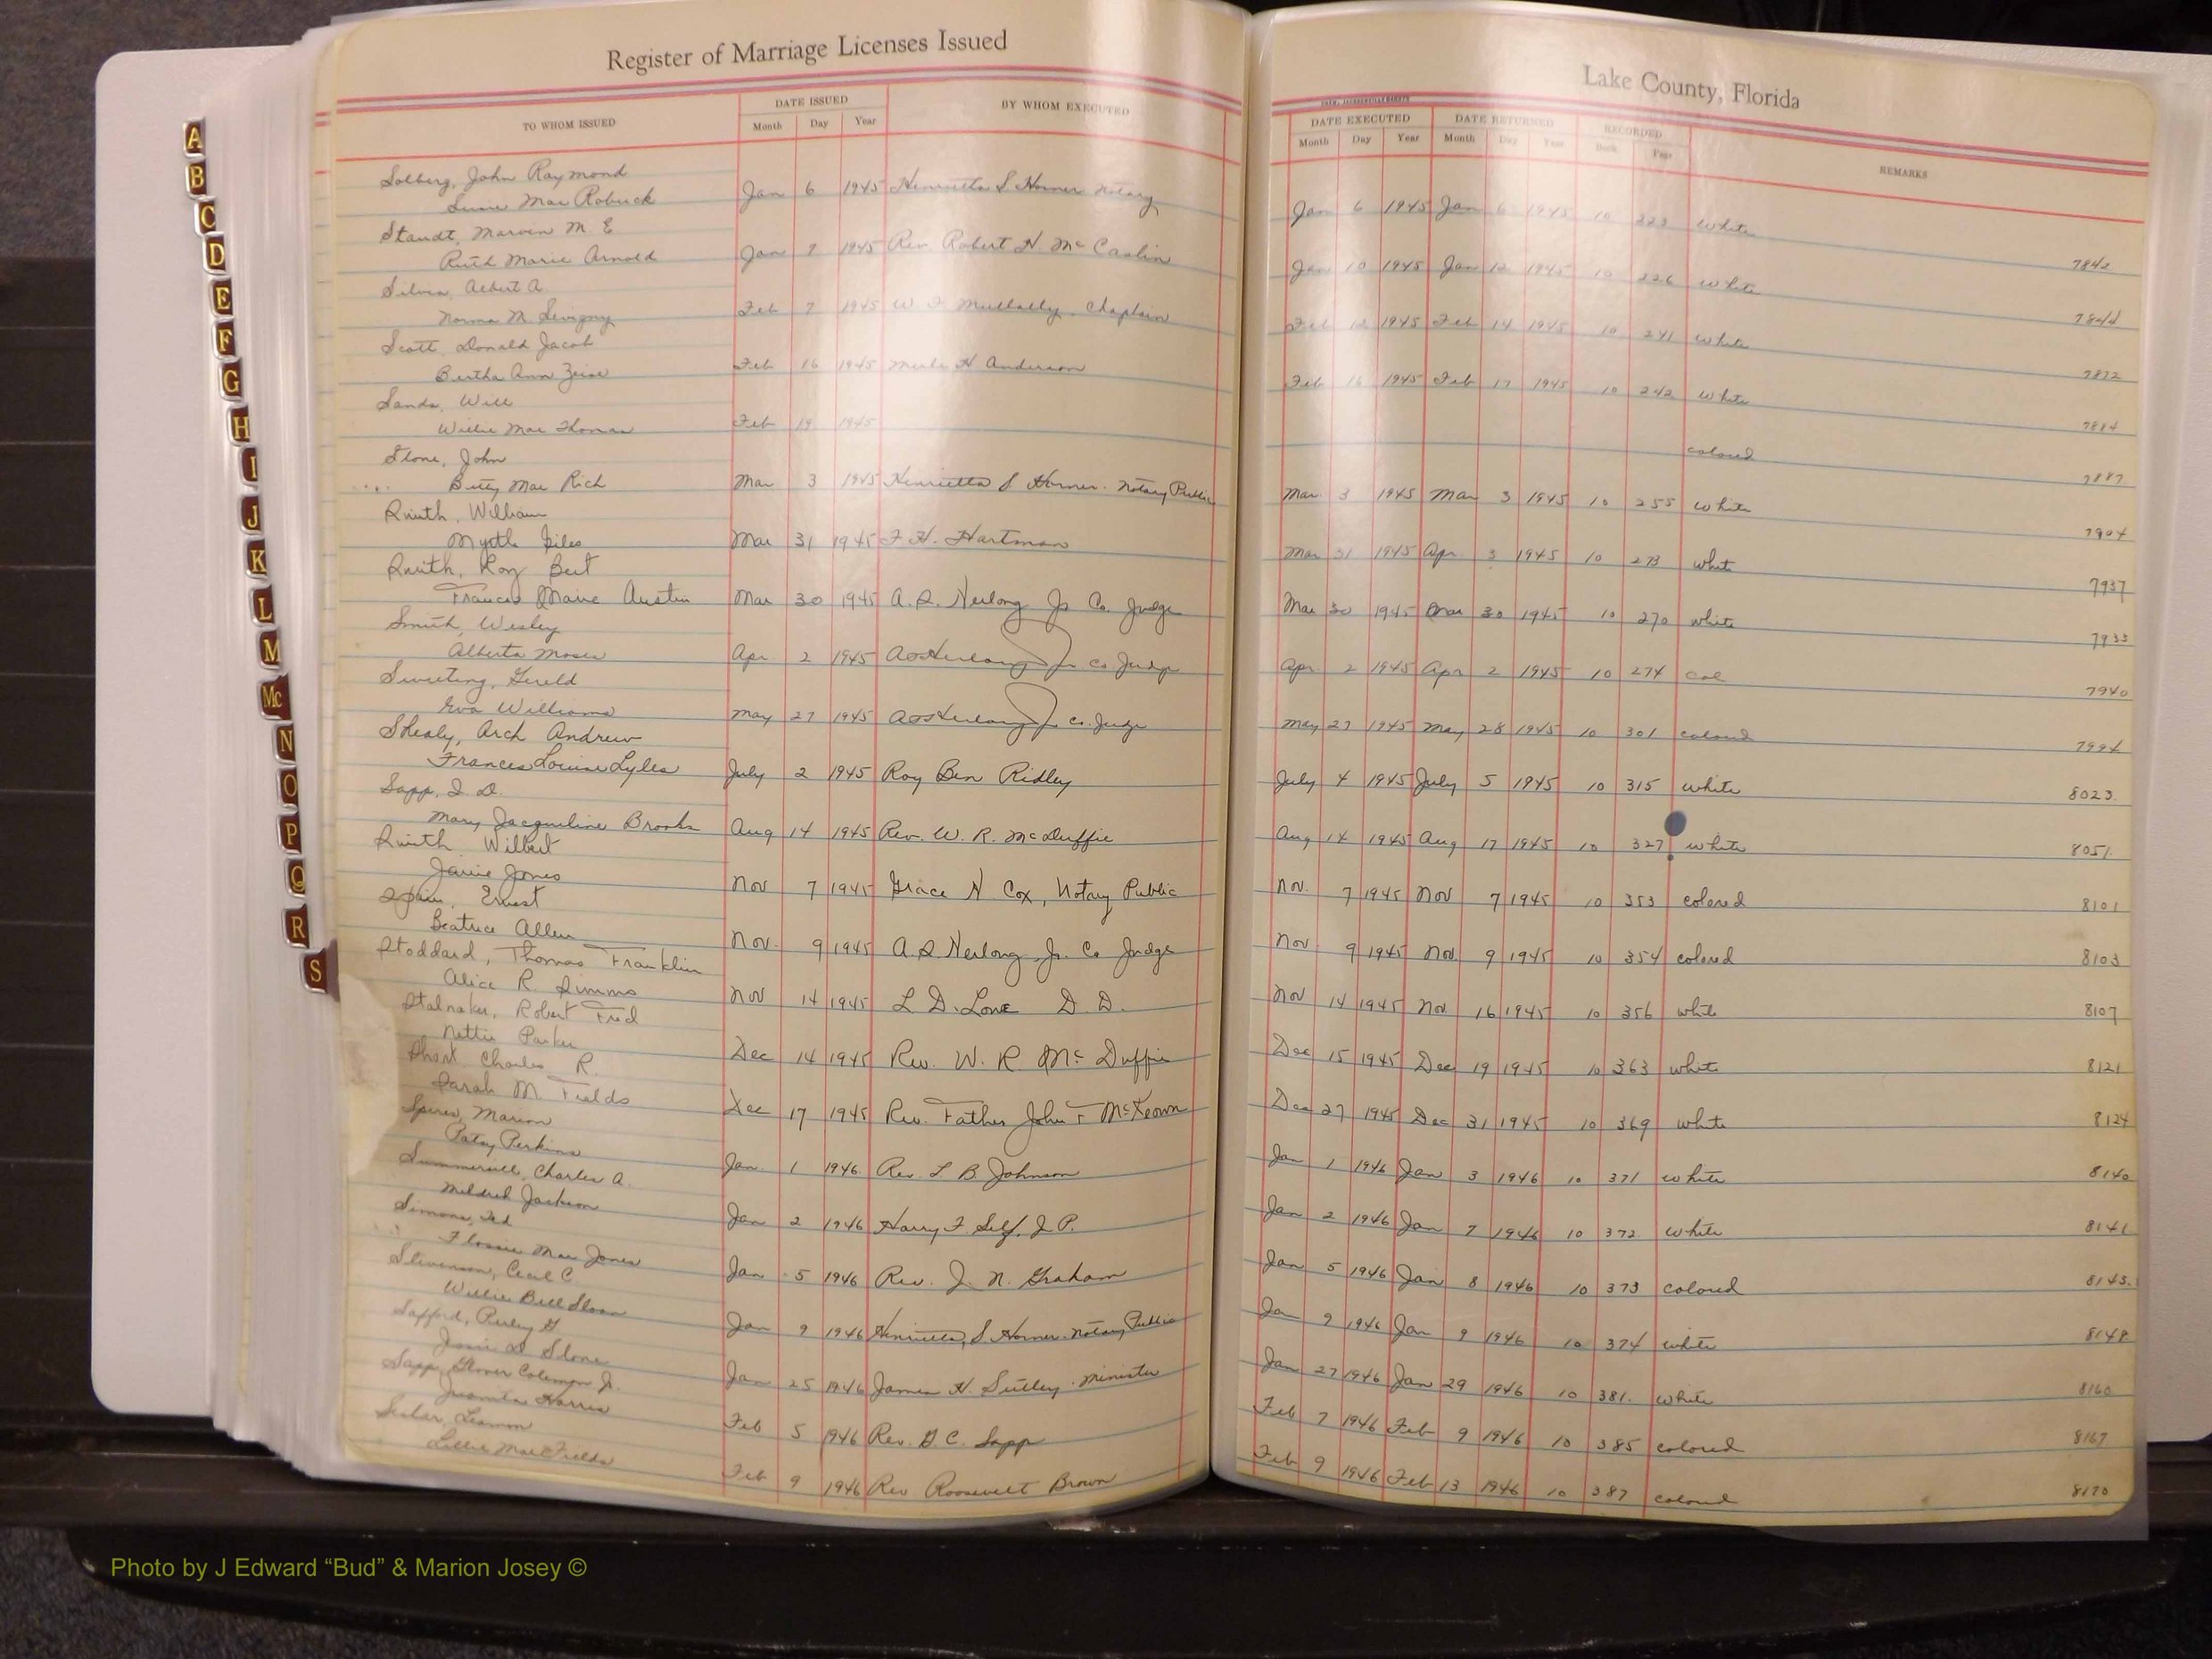 Register of Marriage Licenses Issued
Lake County, Florida
TO WHOM ISSUED DATE ISSUED Month Day Year BY WHOM EXECUTED
DATE EXECUTED Month Day Year DATE RETURNED Month Day Year RECORDED Book Page REMARKS
Solberg, John Raymond
Mae Robuck Jan 6 1945 Henrietta S Horner Notary Jan 6 1945 Jan 6 1945 10 223 white 7842
Standt, Marven M. E
Ruth Marie Arnold Jan 7 1945 Rev. Robert H. McCaslin Jan 10 1945 Jan 12 1945 10 226 white 7844
Silvia, Albert A.
Norma M. Levigny Feb 7 1945 W F Mullally, Chaplain Feb 12 1945 Feb 14 1945 10 241 white 7872
Scott, Donald Jacob
Bertha Ann Zeise Feb 16 1945 Merle H Anderson Feb 16 1945 Feb 17 1945 10 242 white 7884
Sands, Will
Willie Mae Thomas Feb 19 1945 colored 7887
Stone, John
Betty Mae Rich Mar 3 1945 Henrietta S Horner. Notary Public Mar. 3 1945 Mar 3 1945 10 255 white 7904
Smith, William
Myrtle Giles Mar 31 1945 F. H. Hartman Mar 31 1945 Apr. 3 1945 10 273 white 7937
Smith, Roy Bert
Frances Maire Austin Mar 30 1945 A. S. Herlong Jr Co. Judge Mar 30 1945 Mar 30 1945 10 270 white 7935
Smith, Wesley
Alberta Moses Apr. 2 1945 A S Herlong Jr. Co Judge Apr. 2 1945 Apr 2 1945 10 274 col 7940
Sweeting, Gereld
Eva Williams May 27 1945 A S Herlong Jr Co. Judge May 27 1945 May 28 1945 10 301 colored 7994
Shealy, Arch Andrew
Frances Louise Lyles July 2 1945 Roy Ben Ridley July 4 1945 July 5 1945 10 315 white 8023
Sapp, I. D.
Mary Jacqueline Brooks Aug 14 1945 Rev. W. R. McDuffie Aug 14 1945 Aug 17 1945 10 327 white 8051
Smith Wilbert
Janie Jones Nov 7 1945 Grace N Cox, Notary Public Nov. 7 1945 Nov 7 1945 10 353 colored 8101
Spain, Ernest
Beatrice Allen Nov. 9 1945 A. S. Herlong, Jr. Co Judge Nov 9 1945 Nov. 9 1945 10 354 colored 8103
Stoddard, Thomas Franklin
Alice R. Simms Nov 14 1945 L D. Lowe D. D. Nov 14 1945 Nov. 16 1945 10 356 white 8107
Stalnaker, Robert Fred
Nettie Parker Dec 14 1945 Rev. W. R McDuffie Dec 15 1945 Dec 19 1945 10 363 white 8121
Short Charles R.
Sarah M. Fields Dec 17 1945 Rev. Father John F McKeown Dec 27 1945 Dec 31 1945 10 369 white 8124
Spires, Marion
Patsy Perkins Jan. 1 1946 Rev. L B. Johnson Jan 1 1946 Jan 3 1946 10 371 white 8140
Summersell, Charles A.
Mildred Jackson Jan 2 1946 Harry F. Self, J P. Jan 2 1946 Jan 7 1946 10 372 white 8141
Simons, Ted
Flossie Mae Jones Jan 5 1946 Rev. J. N. Graham Jan 5 1946 Jan 8 1946 10 373 colored 8143
Stevenson, Cecil C.
Willie Bell Sloan Jan 9 1946 Henrietta, S Horner. Notary Public Jan 9 1946 Jan 9 1946 10 374 white 8148
Safford, Perley G
Jessie D Slone Jan 25 1946 James H. Sutley. Minister Jan 27 1946 Jan 29 1946 10 381. white 8160
Sapp, Glover Coleman Jr.
Juanita Harris Feb 5 1946 Rev. G C. Sapp Feb 7 1946 Feb 9 1946 10 385 colored 8167
Lillie Mae Fields Feb 9 1946 Rev Roosevelt Brown Feb 9 1946 Feb 13 1946 10 387 colored 8170
A
B
C
D
E
F
G
H
I
J
K
L
M
Mc
N
O
P
Q
R
S
Photo by J Edward “Bud” & Marion Josey ©